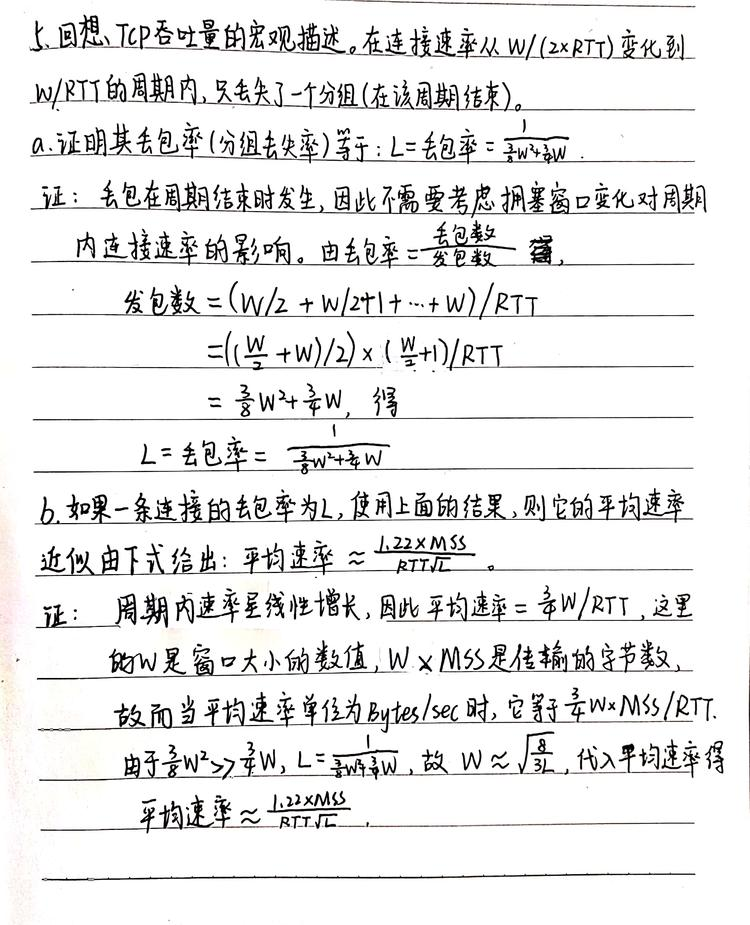 5. 回想、TCP吞吐量的宏观描述。在连接速率从 W/(2×RTT) 变化到
W/RTT的周期内,只丢失了一个分组(在该周期结束)。
a. 证明其丢包率(分组丢失率)等于: L=丢包率= 1/(3/8W²+3/4W) .
证: 丢包在周期结束时发生,因此不需要考虑拥塞窗口变化对周期
内连接速率的影响。由丢包率=丢包数/发包数 得,
发包数=(W/2 + W/2+1+…+W)/RTT
=((W/2+W)/2)×(W/2+1)/RTT
= 3/8W²+3/4W, 得
L=丢包率= 1/(3/8W²+3/4W)
b. 如果一条连接的丢包率为L,使用上面的结果,则它的平均速率
近似由下式给出: 平均速率 ≈ 1.22×MSS/(RTT√L) 。
证: 周期内速率呈线性增长,因此平均速率= 3/4W/RTT ,这里
的W是窗口大小的数值, W×MSS是传输的字节数,
故而当平均速率单位为Bytes/sec时,它等于3/4W×MSS/RTT.
由于3/8W²>>3/4W, L=1/(3/8W²+3/4W) ,故 W≈√(8/3L) ,代入平均速率得
平均速率≈ 1.22×MSS/(RTT√L) .